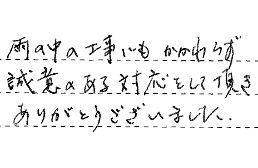 雨の中の工事にもかかわらず
誠意のある対応をして頂き
ありがとうございました.